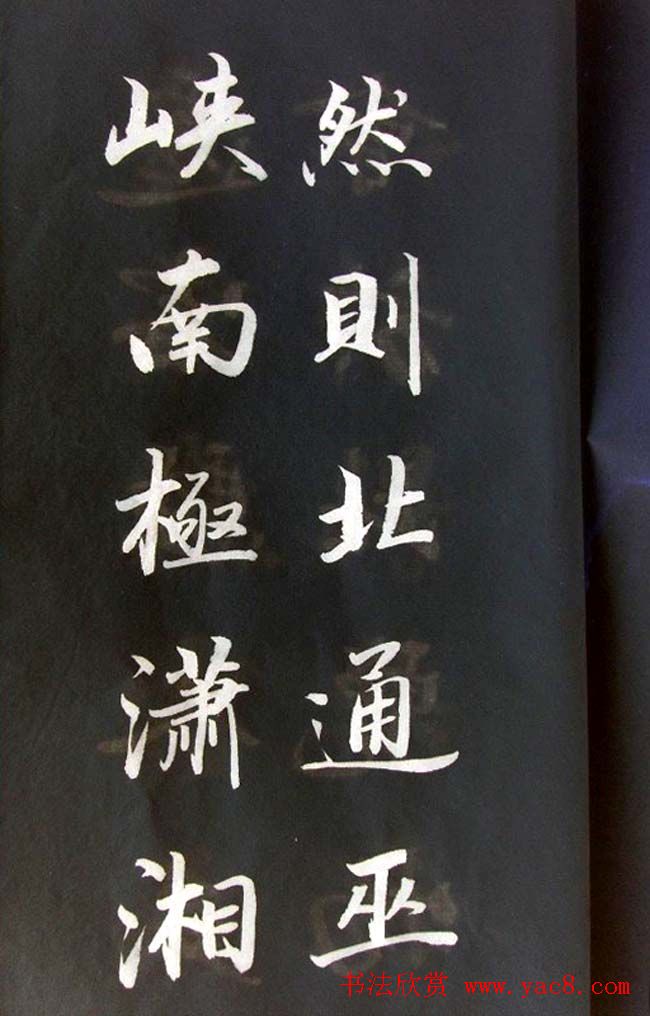 然則北通巫
峽南極瀟湘
书法欣赏 www.yac8.com